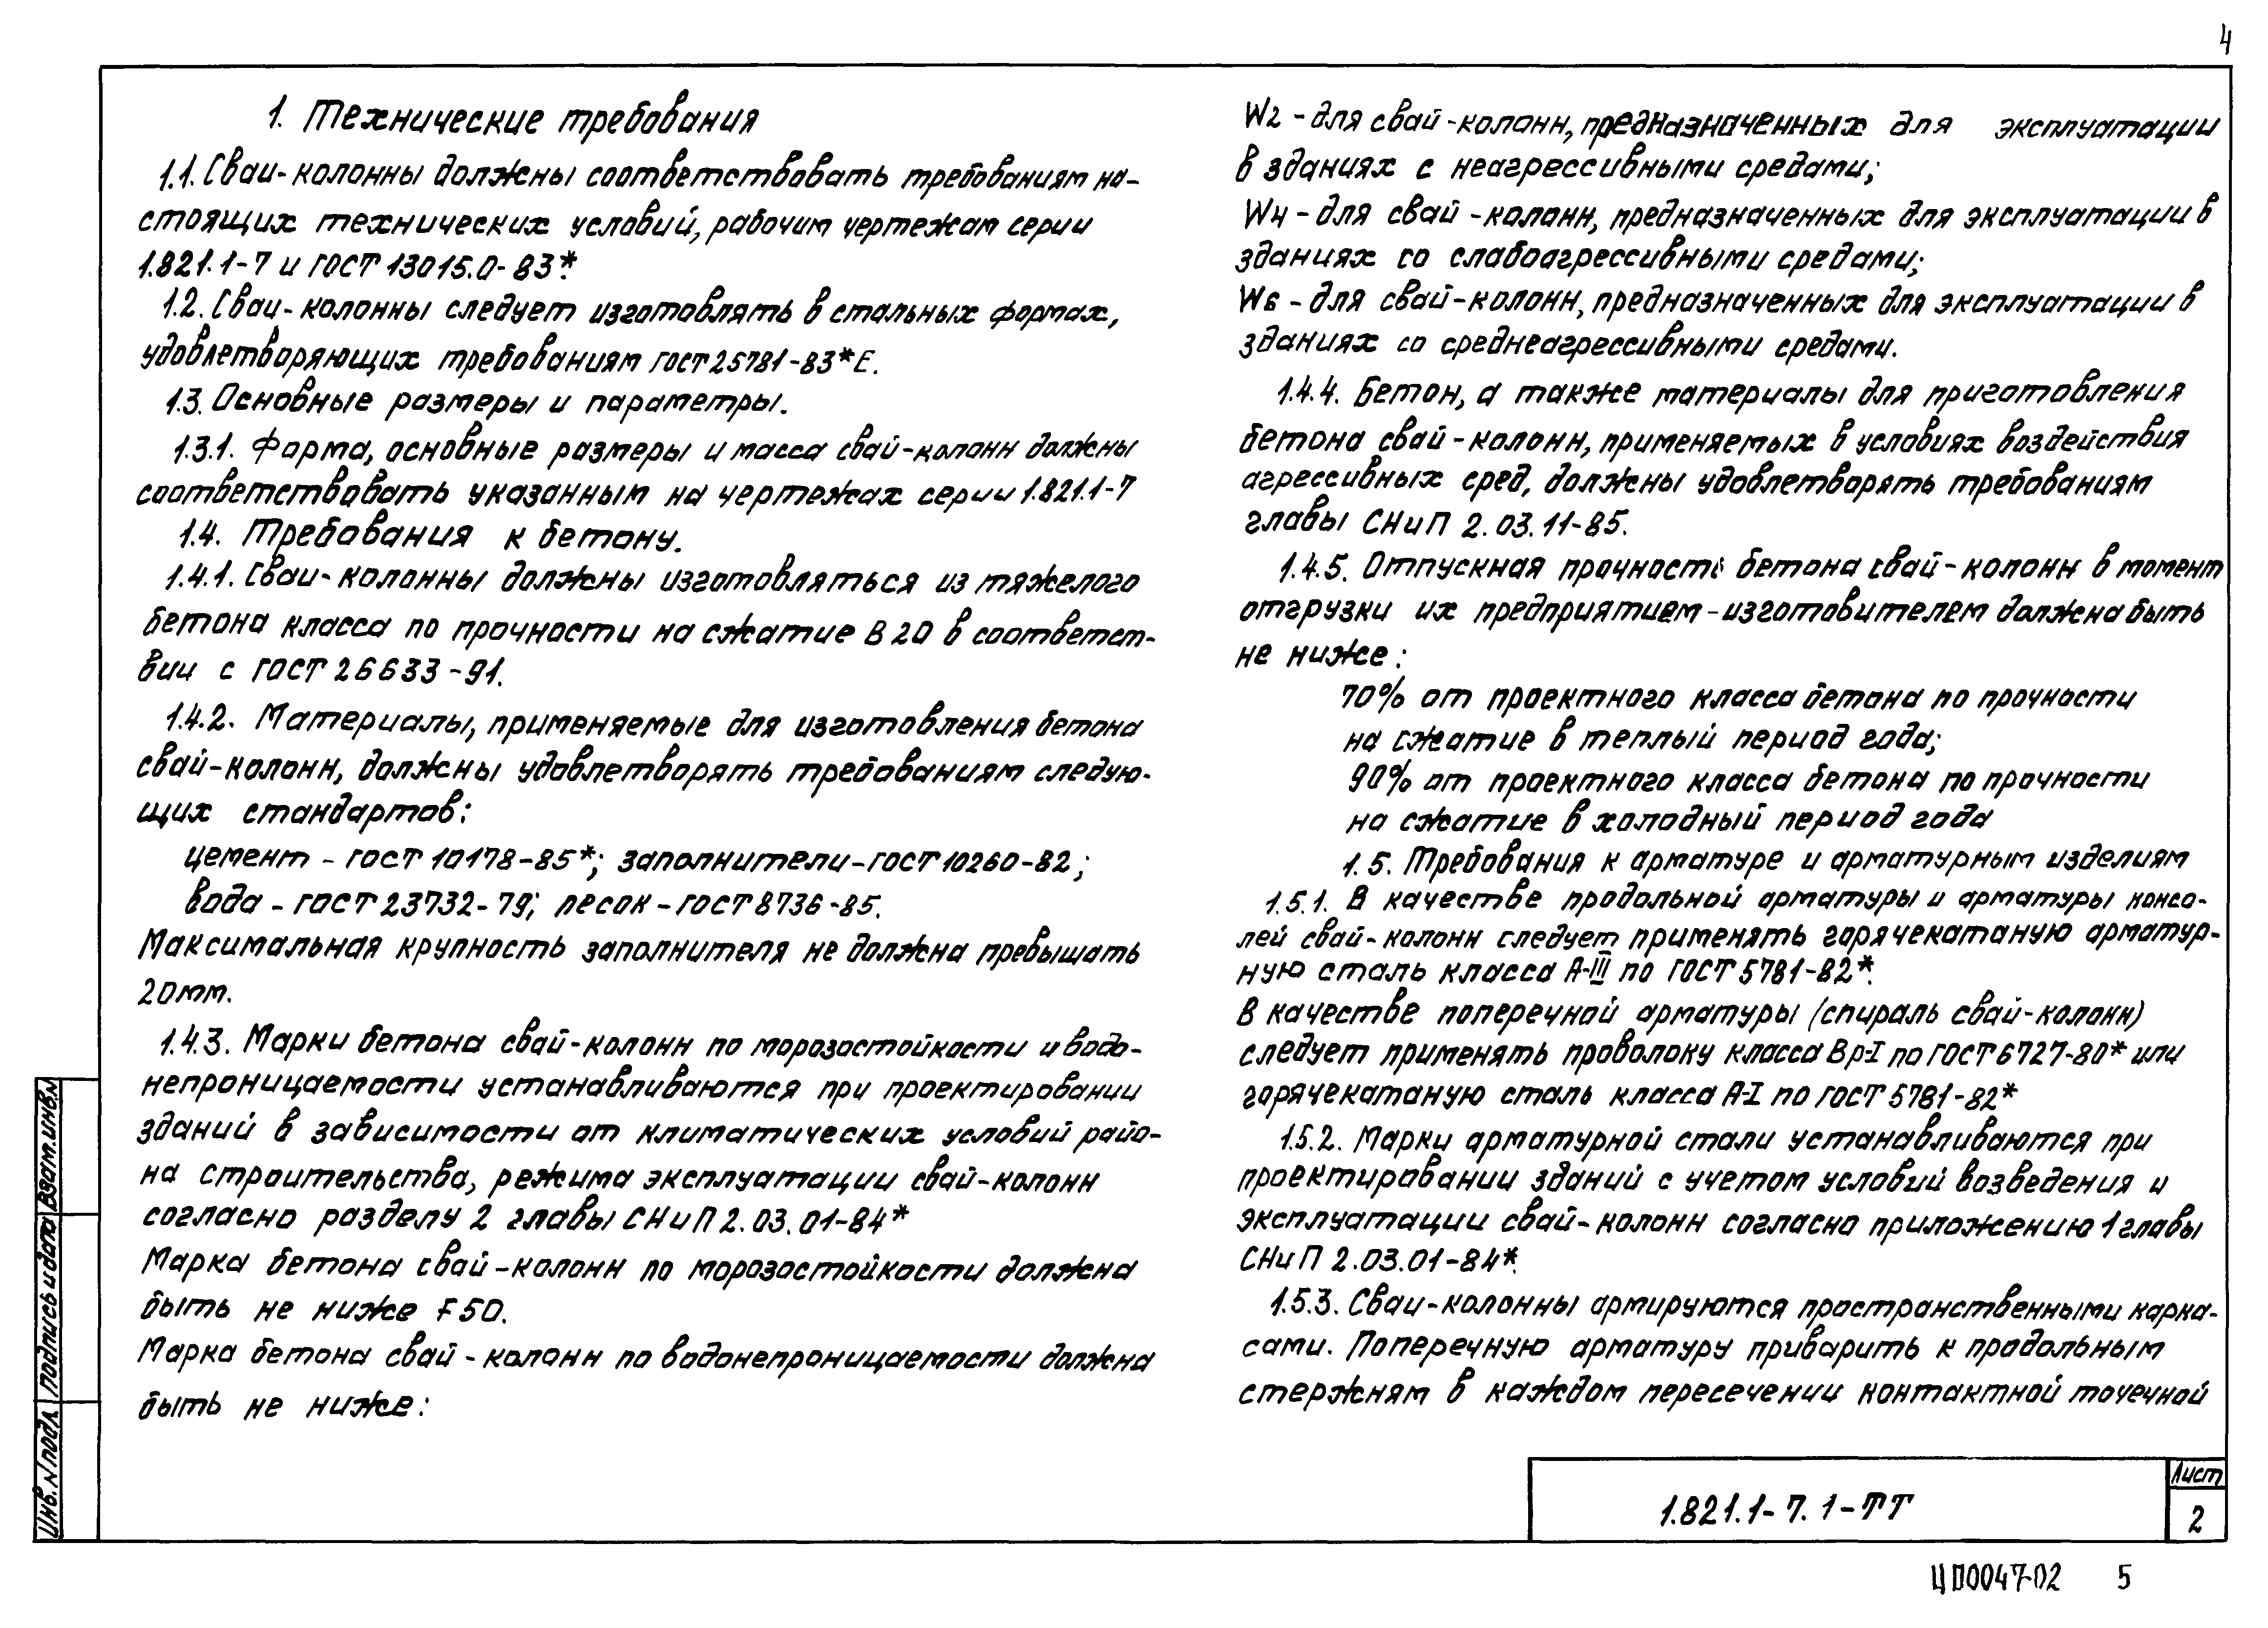 4
1. Технические требования
1.1. Сваи-колонны должны соответствовать требованиям на-
стоящих технических условий, рабочим чертежам серии
1.821.1-7 и ГОСТ 13015.0-83*.
1.2. Сваи-колонны следует изготовлять в стальных формах,
удовлетворяющих требованиям ГОСТ 25781-83*Е.
1.3. Основные размеры и параметры.
1.3.1. Форма, основные размеры и масса свай-колонн должны
соответствовать указанным на чертежах серии 1.821.1-7
1.4. Требования к бетону.
1.4.1. Сваи-колонны должны изготовляться из тяжелого
бетона класса по прочности на сжатие В20 в соответст-
вии с ГОСТ 26633-91.
1.4.2. Материалы, применяемые для изготовления бетона
свай-колонн, должны удовлетворять требованиям следую-
щих стандартов:
цемент - ГОСТ 10178-85*; заполнители-ГОСТ 10260-82;
вода - ГОСТ 23732-79; песок-ГОСТ 8736-85.
Максимальная крупность заполнителя не должна превышать
20мм.
1.4.3. Марки бетона свай-колонн по морозостойкости и водо-
непроницаемости устанавливаются при проектировании
зданий в зависимости от климатических условий райо-
на строительства, режима эксплуатации свай-колонн
согласно разделу 2 главы СНиП 2.03.01-84*
Марка бетона свай-колонн по морозостойкости должна
быть не ниже F50.
Марка бетона свай-колонн по водонепроницаемости должна
быть не ниже:
W2 - для свай-колонн, предназначенных для эксплуатации
в зданиях с неагрессивными средами;
W4 - для свай-колонн, предназначенных для эксплуатации в
зданиях со слабоагрессивными средами;
W6 - для свай-колонн, предназначенных для эксплуатации в
зданиях со среднеагрессивными средами.
1.4.4. Бетон, а также материалы для приготовления
бетона свай-колонн, применяемых в условиях воздействия
агрессивных сред, должны удовлетворять требованиям
главы СНиП 2.03.11-85.
1.4.5. Отпускная прочность бетона свай-колонн в момент
отгрузки их предприятием-изготовителем должна быть
не ниже:
70% от проектного класса бетона по прочности
на сжатие в теплый период года;
90% от проектного класса бетона по прочности
на сжатие в холодный период года
1.5. Требования к арматуре и арматурным изделиям
1.5.1. В качестве продольной арматуры и арматуры консо-
лей свай-колонн следует применять горячекатаную арматур-
ную сталь класса А-III по ГОСТ 5781-82*.
В качестве поперечной арматуры (спираль свай-колонн)
следует применять проволоку класса Вр-I по ГОСТ 6727-80* или
горячекатаную сталь класса А-I по ГОСТ 5781-82*
1.5.2. Марки арматурной стали устанавливаются при
проектировании зданий с учетом условий возведения и
эксплуатации свай-колонн согласно приложению 1 главы
СНиП 2.03.01-84*.
1.5.3. Сваи-колонны армируются пространственными карка-
сами. Поперечную арматуру приварить к продольным
стержням в каждом пересечении контактной точечной
Инв. N подл. Подпись и дата Взам. инв. N
1.821.1-7.1-ТТ
Лист
2
ЦП0047-02 5